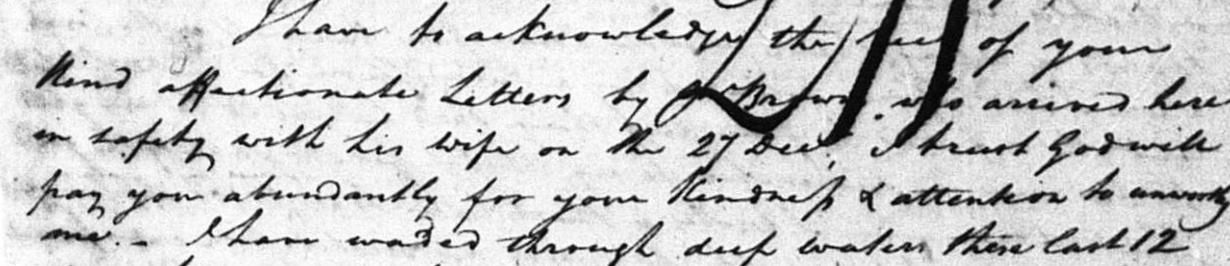 I have to acknowledge the of your
Kind affectionate Letters by Brown who arrived here
in safety with his wife on the 27 Dec, I trust God will
pay you abundantly for your Kindness & attention to unworthy
me. - I have waded through deep waters these last 12